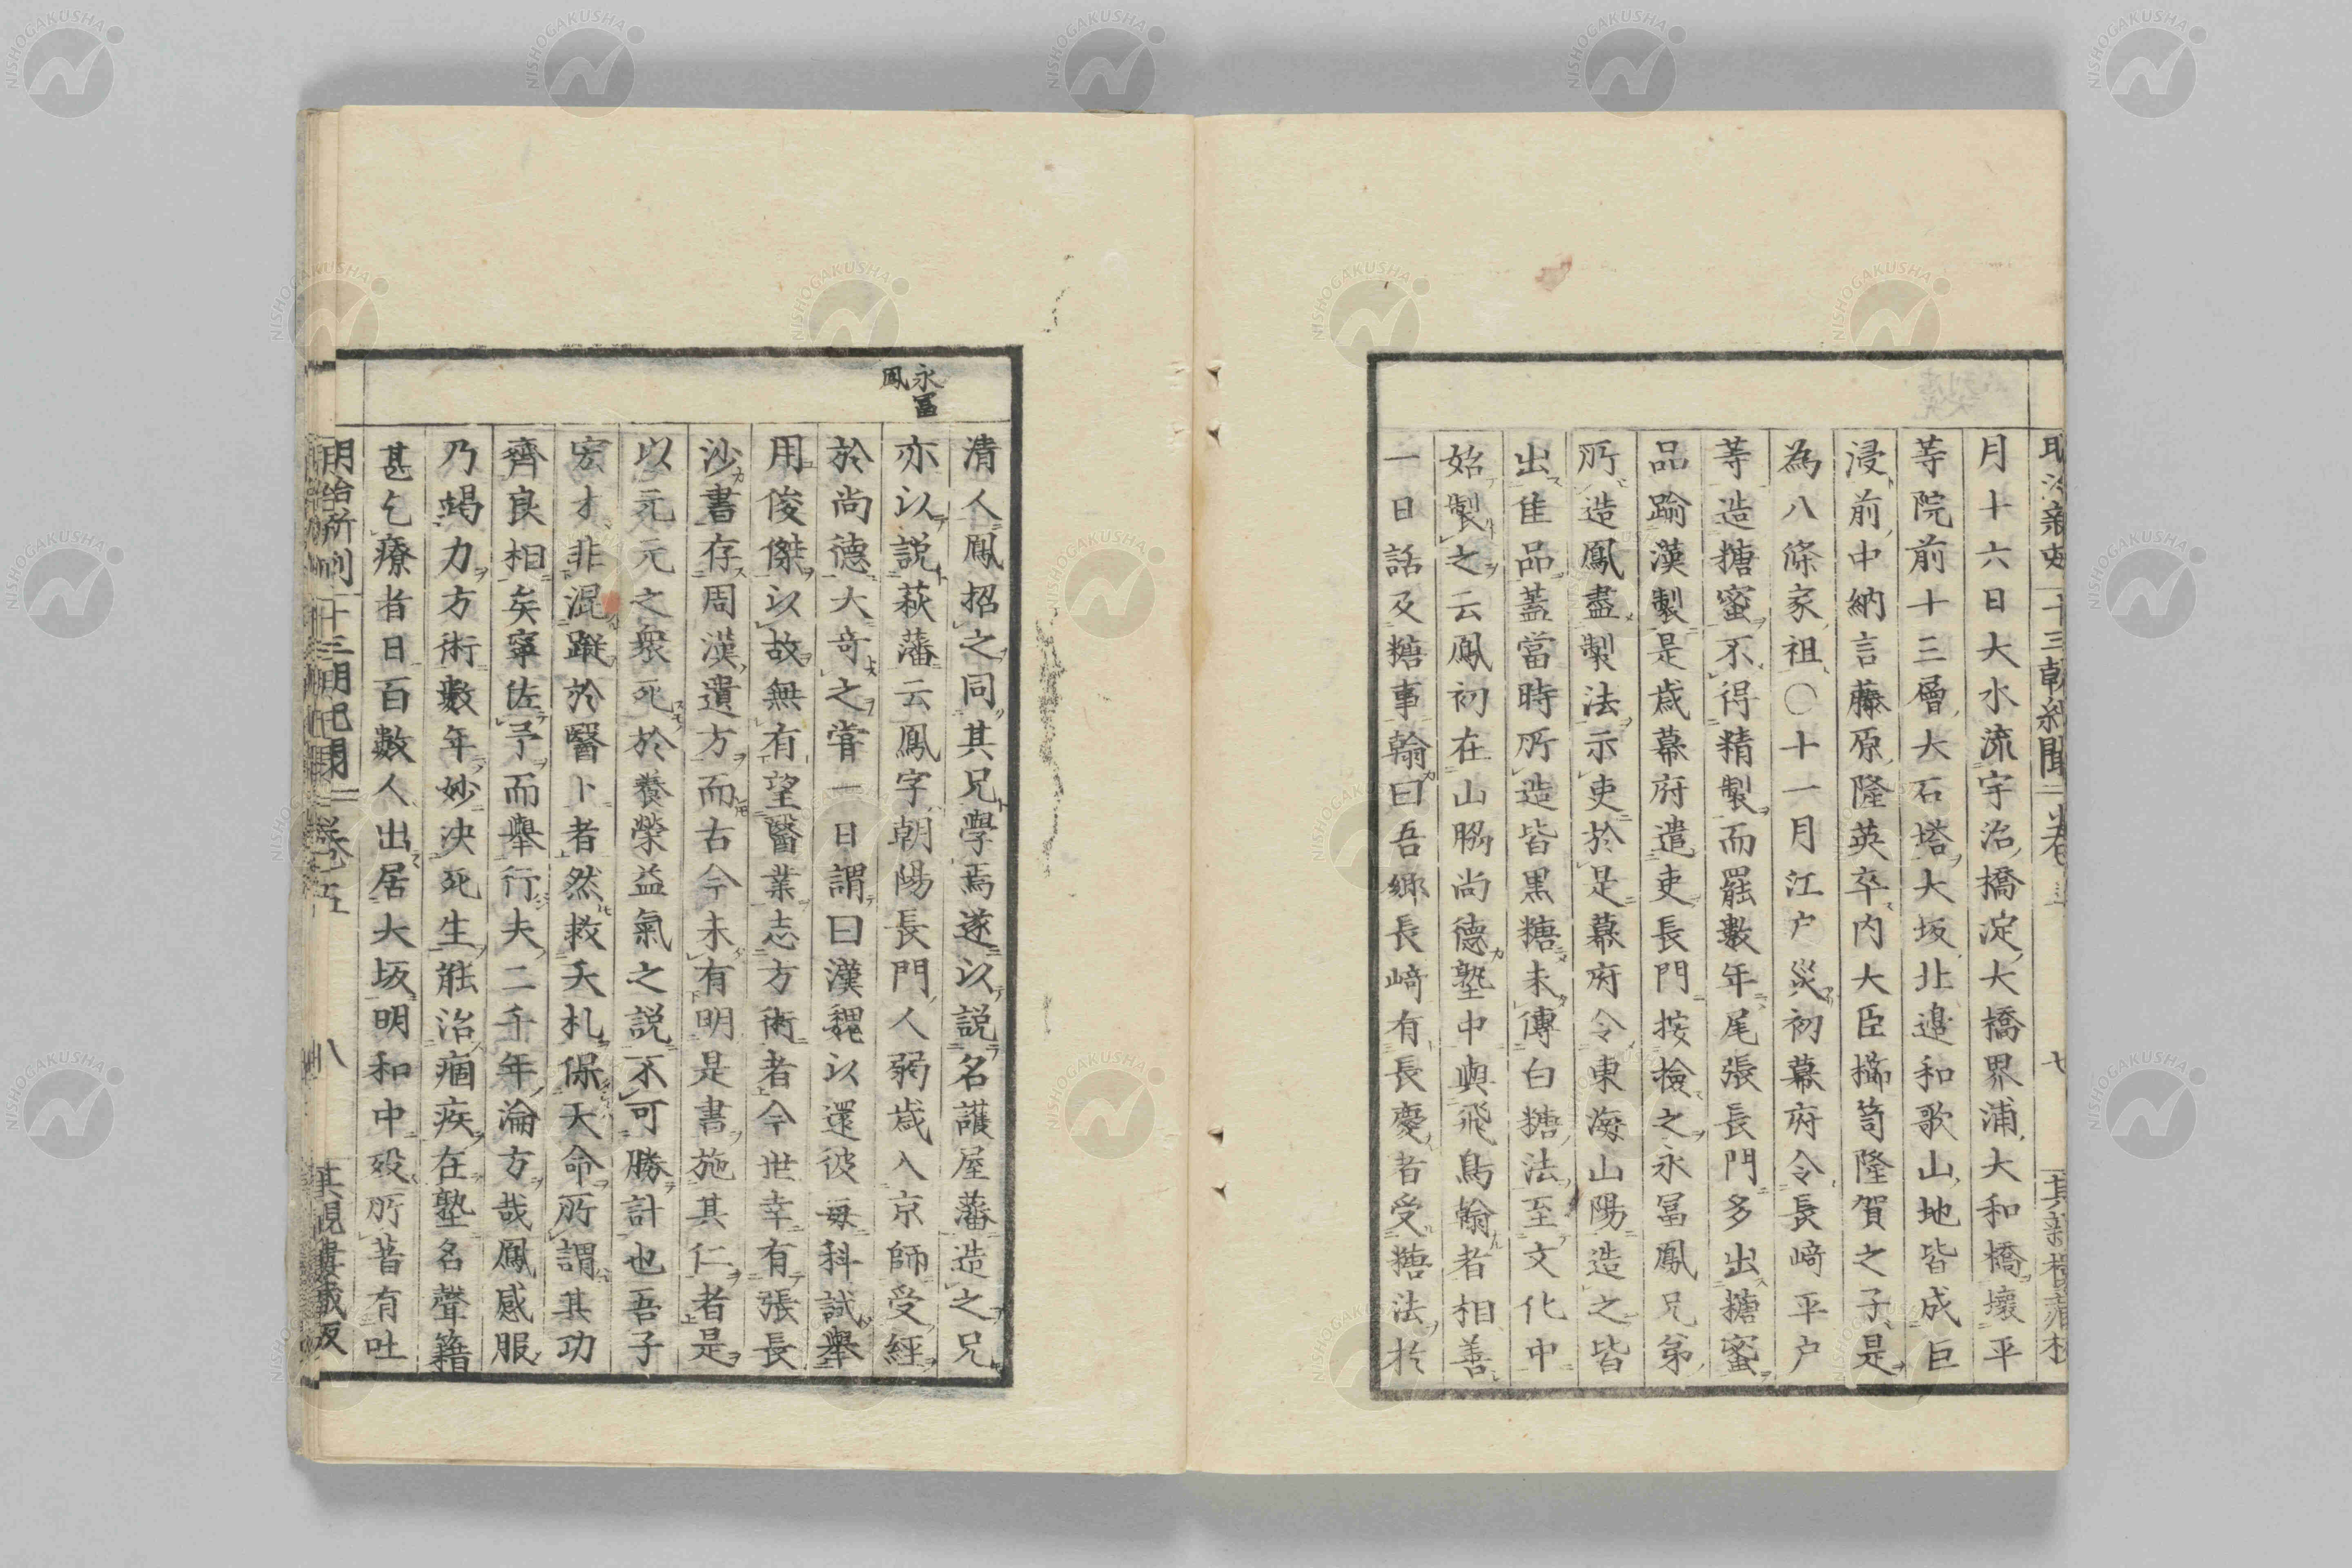 明治新刻 十三朝紀聞 卷五 七 其新樓藏板
月十六日大水流宇治橋淀大橋界浦大和橋壞平
等院前十三層大石塔大坂北邉和歌山地皆成巨
浸前中納言藤原隆英卒内大臣櫛笥隆賀之子是
為八條家祖〇十一月江户災初幕府令長﨑平户
等造糖蜜不得精製而罷數年尾張長門多出糖蜜
品踰漢製是歳幕府遣吏長門按檢之永冨鳳兄弟
所造鳳盡製法示吏於是幕府令東海山陽造之皆
出佳品蓋當時所造皆黒糖未傳白糖法至文化中
始製之云鳳初在山脇尚德塾中與飛鳥翰者相善
一日話及糖事翰曰吾鄉長﨑有長慶者受糖法於
永冨
鳳
清人鳳招之同其兄學焉遂以説名護屋藩造之兄
亦以説萩藩云鳳字朝陽長門人弱歳入京師受經
於尚德大奇之嘗一日謂曰漢魏以還彼毎科試舉
用俊傑以故無有望醫業志方術者今世幸有張長
沙書存周漢遺方而古今未有明是書施其仁者是
以元元之衆死於養榮益氣之説不可勝計也吾子
宏才非混蹤於醫卜者然救夭札保天命所謂其功
齊良相矣寧佐予而舉行夫二千年淪方哉鳳感服
乃竭力方術數年妙決死生能治痼疾在塾名聲籍
甚乞療者日百數人出居大坂明和中殁所著有吐
明治新刻 十三朝紀聞 卷五 八 其親樓藏板